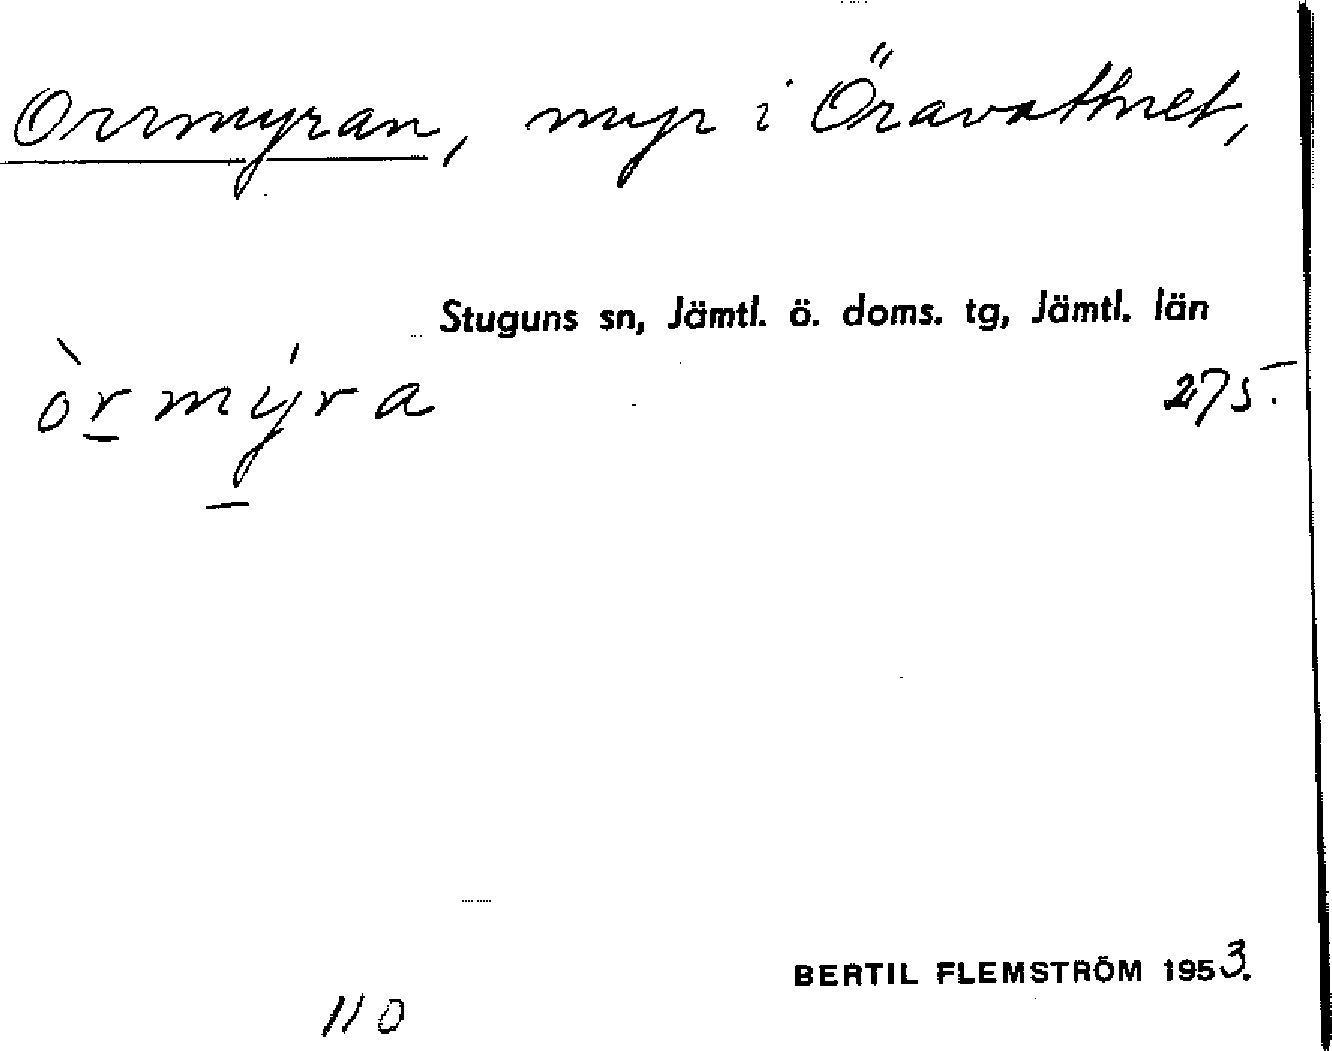 Orrmyran, myr i Öravattnet,
Stuguns sn, Jämtl. ö. doms. tg, Jämtl. län
òr̲mý̲ra
275.
BERTIL FLEMSTRÖM 1953.
110